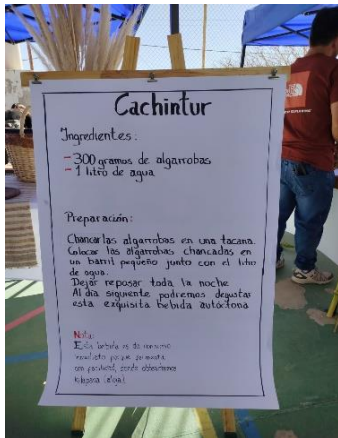 Cachintur
Ingredientes:
- 300 gramos de algarrobas
- 1 litro de agua
Preparación:
Chancar las algarrobas en una tacana.
Colocar las algarrobas chancadas en
un barril pequeño junto con el litro
de agua.
Dejar reposar toda la noche
Al día siguiente podremos degustar
esta exquisita bebida autóctona
Nota:
Esta bebida es de consumo
inmediato porque se
con facilidad, donde